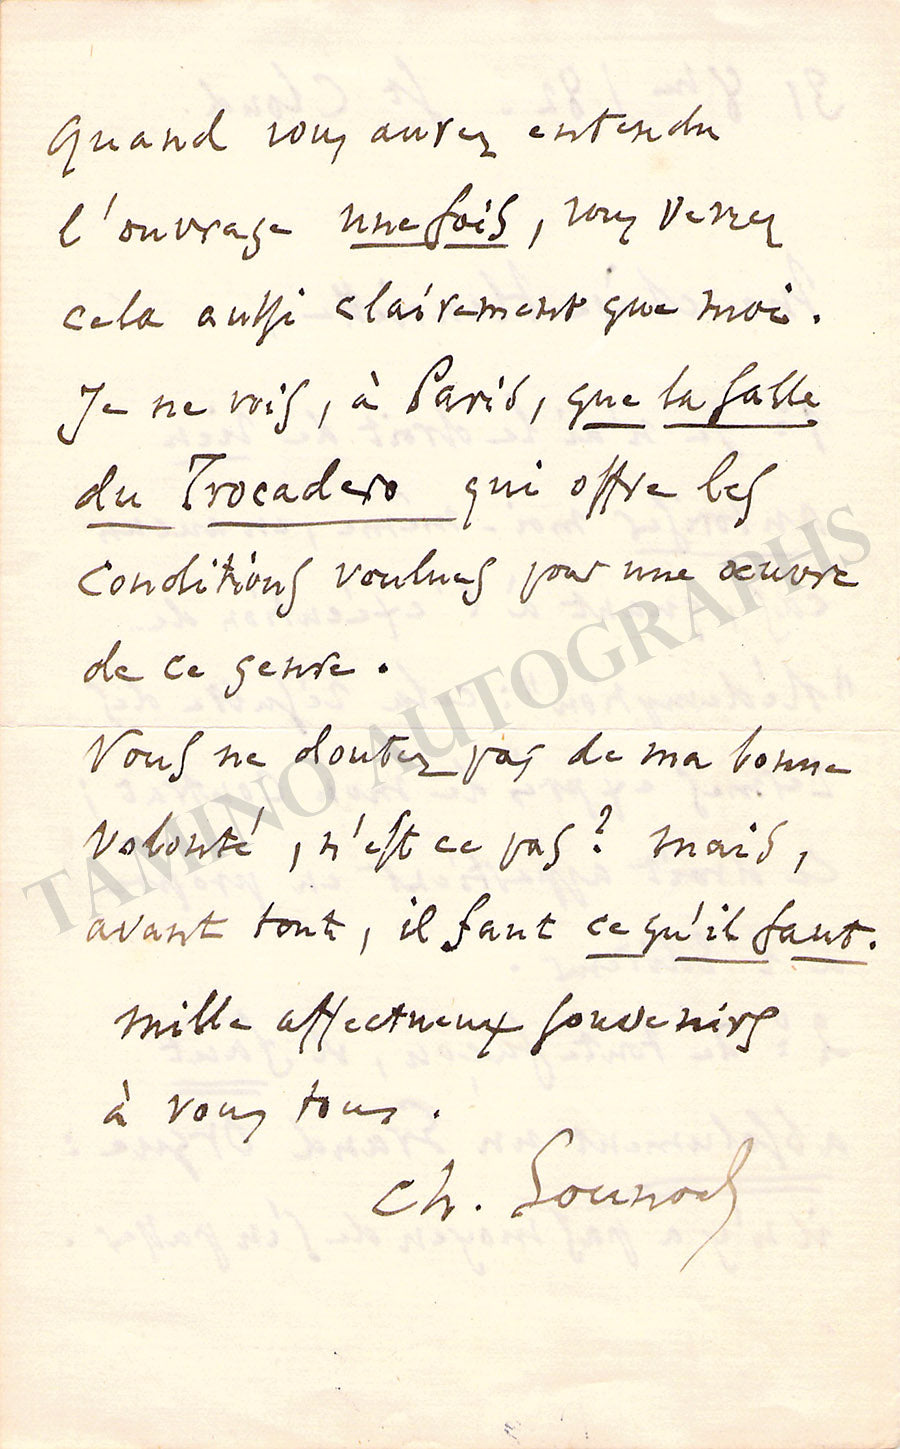 Quand vous aurez entendu
l'ouvrage une fois, vous verrez
cela aussi clairement que moi.
Je ne vois, à Paris, que la salle
du Trocadero qui offre les
conditions voulues pour une œuvre
de ce genre.
Vous ne doutez pas de ma bonne
volonté, n'est ce pas? mais,
avant tout, il faut ce qu'il faut.
mille affectueux souvenirs
à vous tous.
Ch. Gounod
TAMINO AUTOGRAPHS